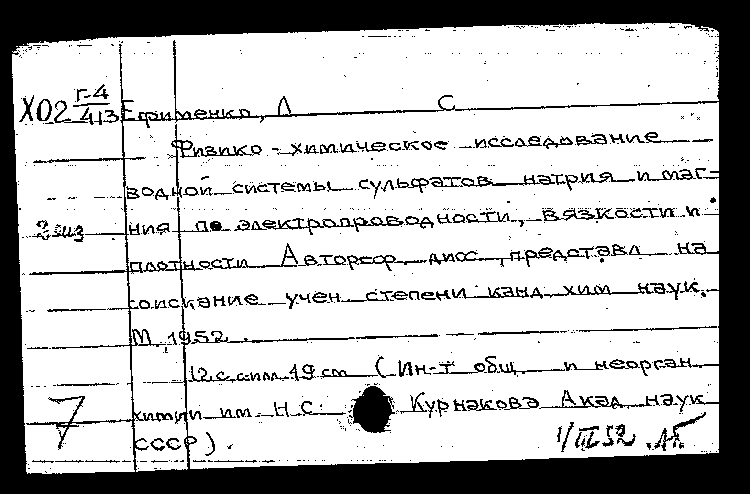 Х02 Г-4/413 Ефименко, Л С
Физико-химическое исследование
водной системы сульфатов натрия и маг-
2 экз ния по электропроводности, вязкости и
плотности Автореф. дисс., представл на
соискание учен степени канд хим наук.
М. 1952.
12 с. илл. 19 см (Ин-т общ. и неорган.
7 химии им. Н.С. Курнакова Акад наук
СССР).
1/III 52